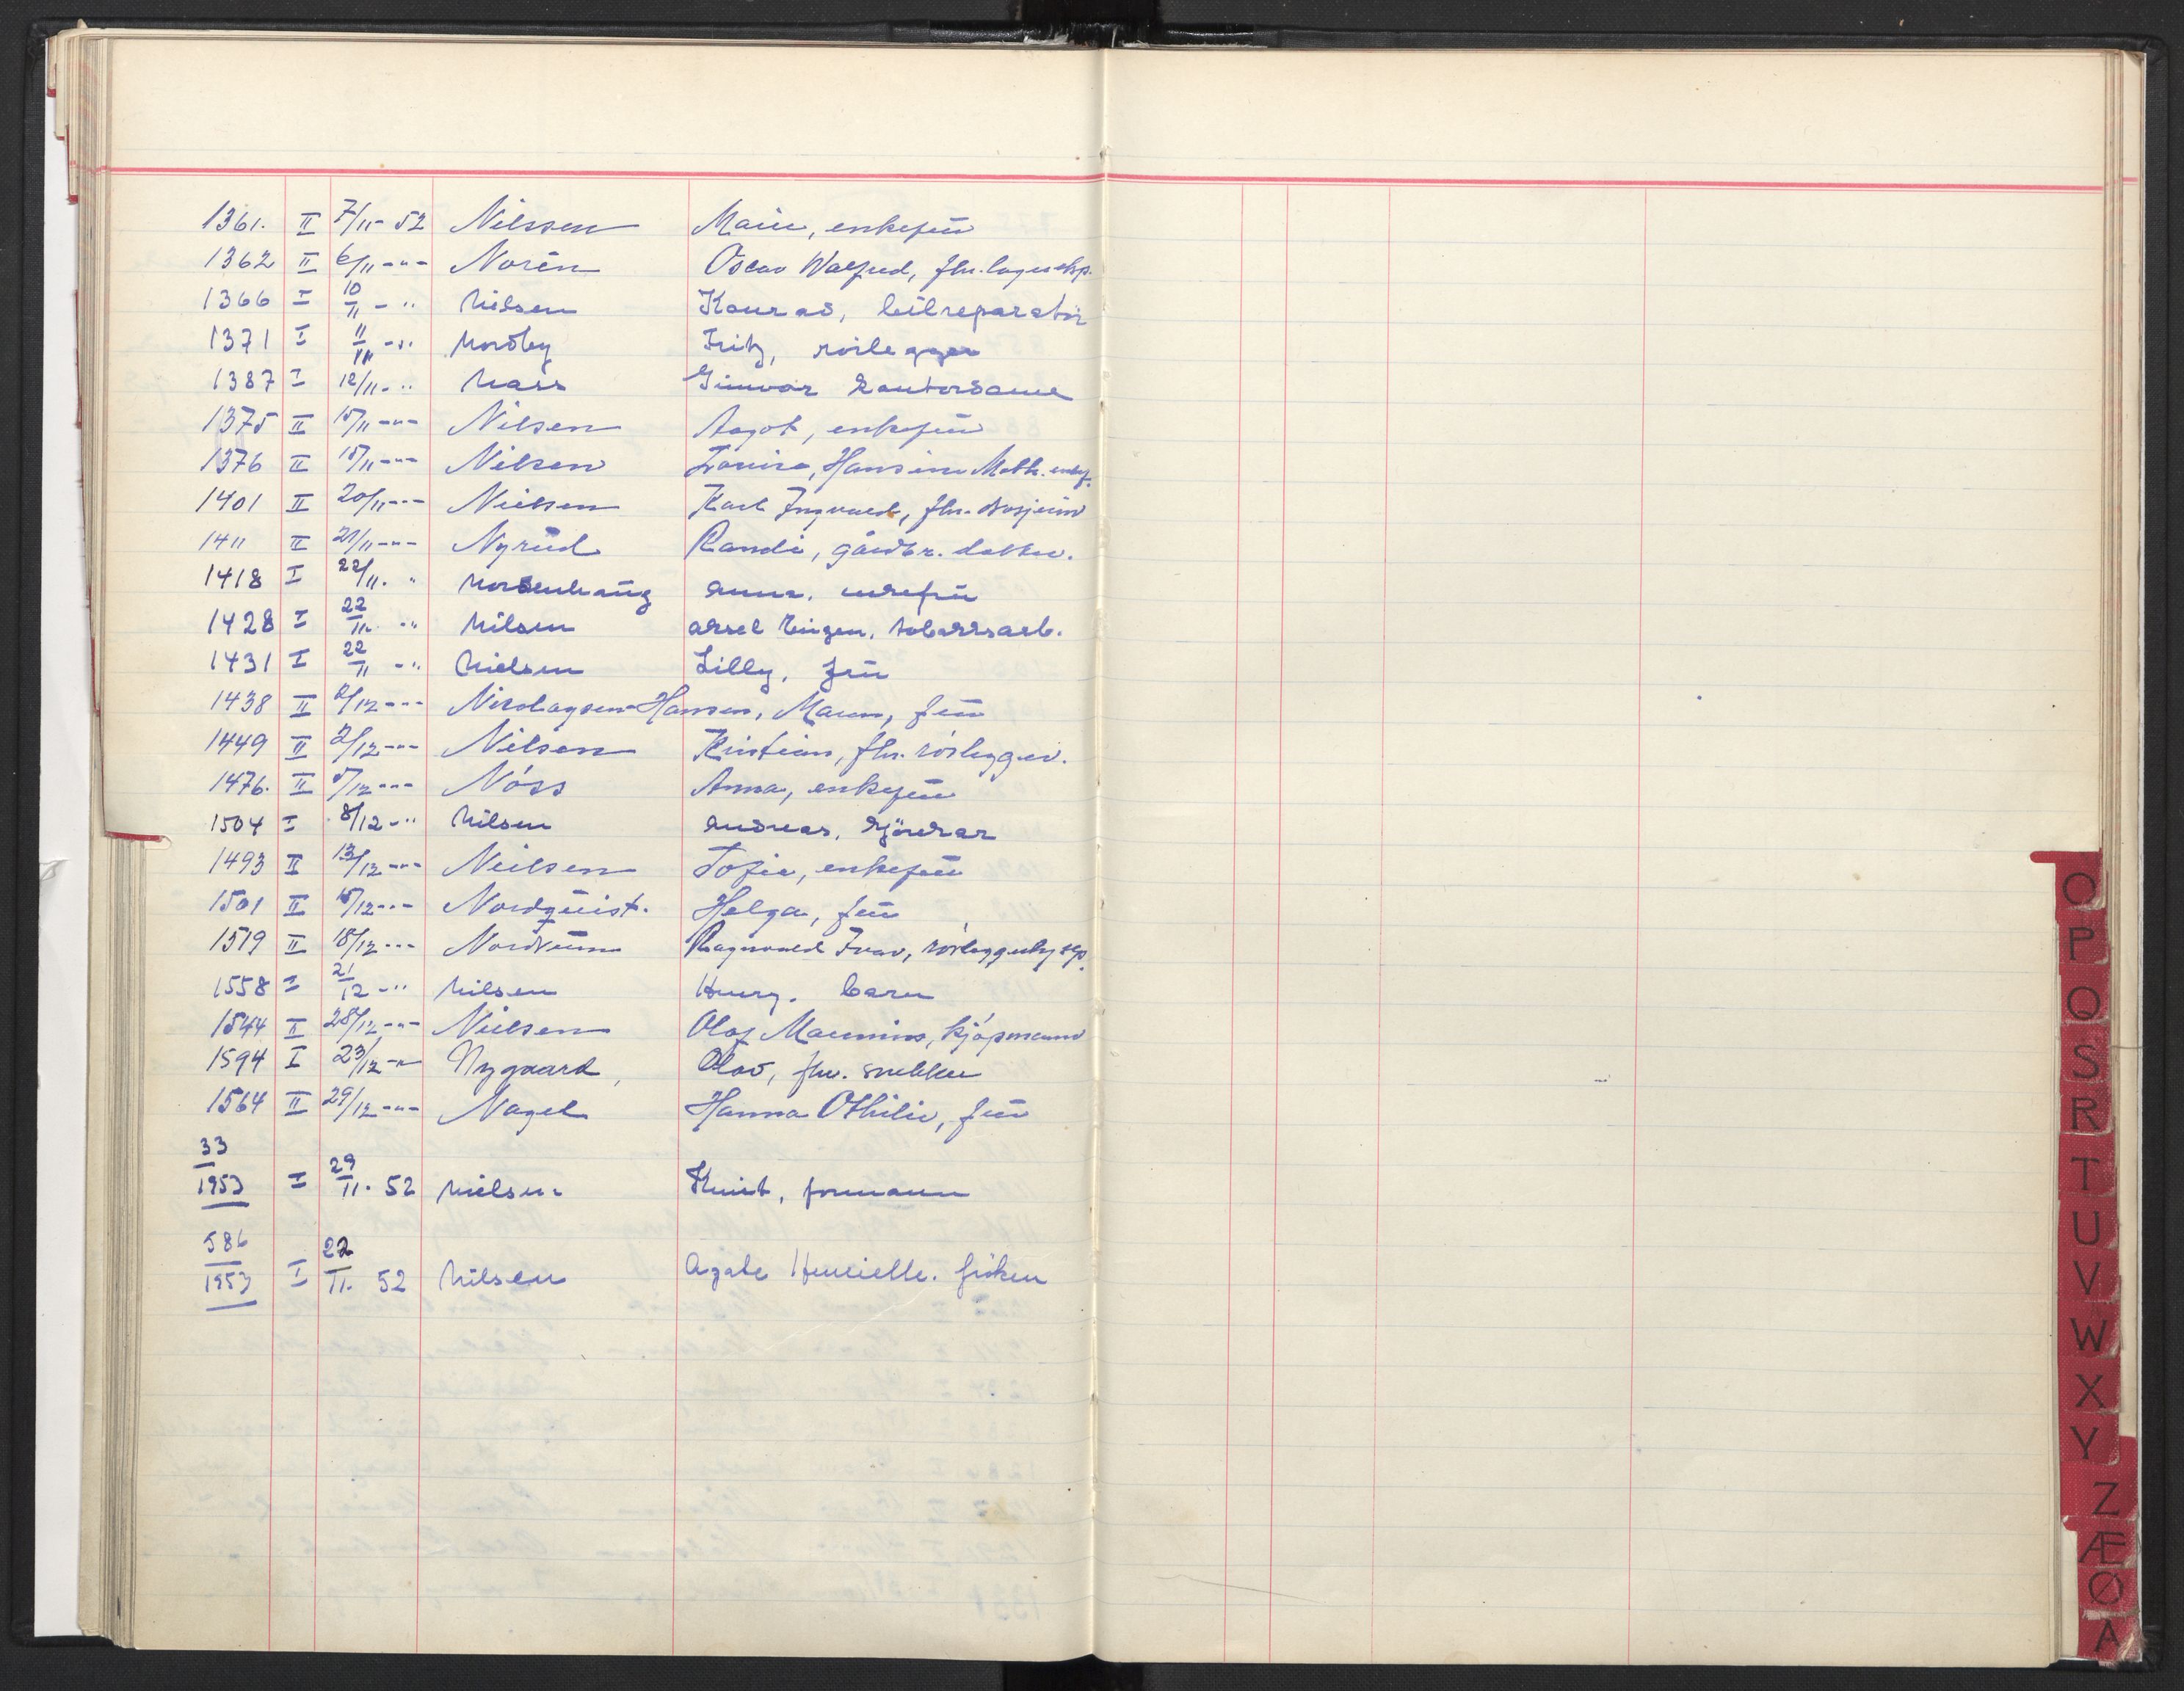 1361. II 7/11- 52 Nilssen Marie, enkefrü
1362 II 6/11 -"- Norén Oscar Walfred, fhv. lagereksp.
1366 I 10/11 - " Nielsen Konrad, bilreparatör
1371 I 11/11 - " Nordby Fritz, rörlegger
1387 I 12/11 - " Næss Gunvor kontordame
1375 II 15/11 -"- Nilsen Aagot, enkefrü
1376 II 15/11 -"- Nilsen Lovise, Hansine Math. enkf.
1401 II 20/11 -"- Nielsen Karl Ingvald,
1411 II 21/11 -"- Nyrüd Randi, gårdbr. datter.
1418 I 22/11. " Nordenhaüg Anna.
1428 I 22/11. " Nilsen Aksel Eügen, tobakksarb.
1431 I 22/11 - " Nielsen Lilly, frü
1438 II 2/12 -"- Nicolaysen-Hansen, Maren, frü
1449 II 2/12 -"- Nilsen Kristian, fhv. rörlegger.
1476. II 5/12 -"- Nöss Anna, enkefrü
1504 I 8/12 - " Nilsen Andreas,
1493 II 13/12 -"- Neilsen Sofie, enkefrü
1501 II 15/12 -"- Nordqüist. Helga, frü
1519 II 18/12 -"- Nordrüm Ragnvald Ivar,
1558 I 21/12 - " Nilsen Henry. barn
1544 II 28/12 -"- Nielsen Olaf kjöpmann
1594 I 23/12 -"- Nygaard, Olav, fhv. snekker
1564 II 29/12 -"- Nagel Hanna Othilie, frü
33
1953 I 29/11. 52 Nielsen Knüt, formann
586
1953 I 22/11. 52 Nilsen Agate Henrielle. fröken
O
P
Q
S
R
T
U
V
W
X
Y
Z
Æ
Ø
A